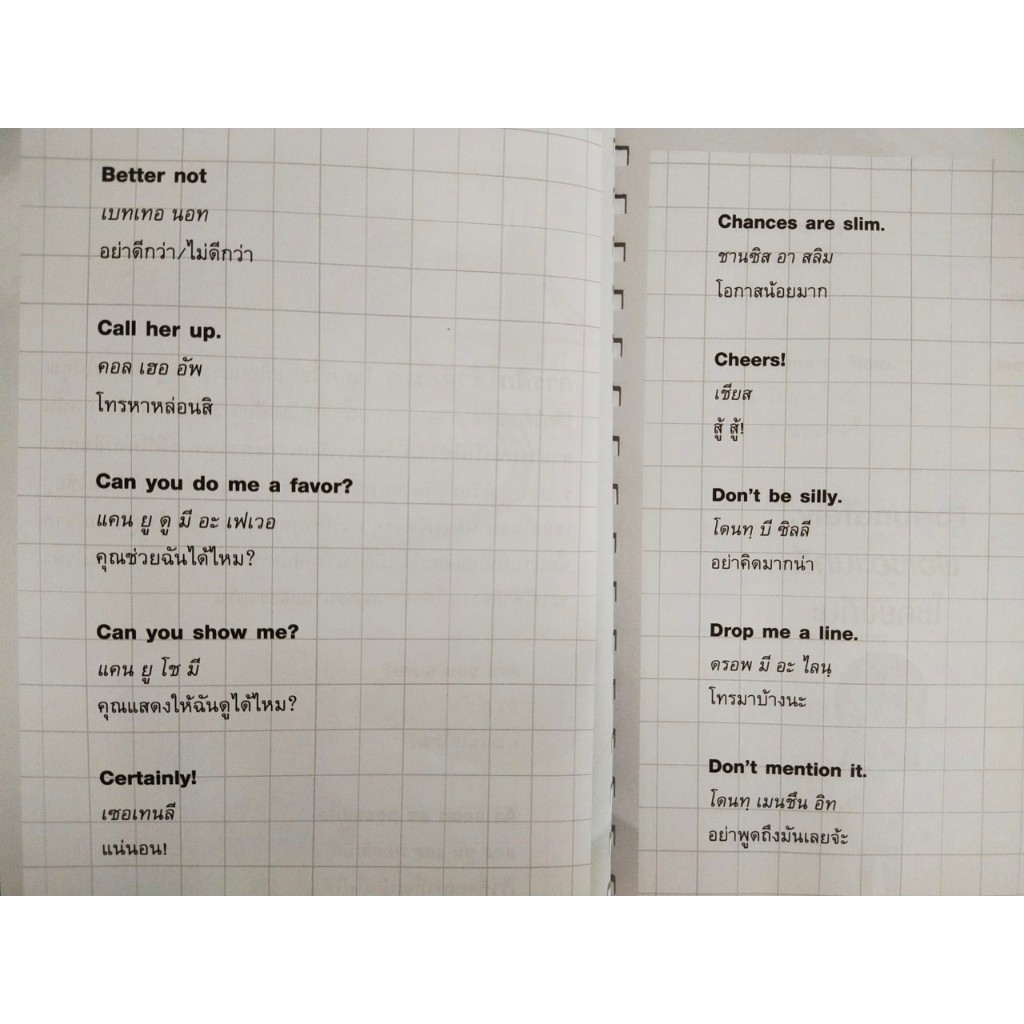 Better not
เบทเทอ นอท
อย่าดีกว่า/ไม่ดีกว่า
Call her up.
คอล เฮอ อัพ
โทรหาหล่อนสิ
Can you do me a favor?
แคน ยู ดู มี อะ เฟเวอ
คุณช่วยฉันได้ไหม?
Can you show me?
แคน ยู โช มี
คุณแสดงให้ฉันดูได้ไหม?
Certainly!
เซอเทนลี
แน่นอน!
Chances are slim.
ชานซิส อา สลิม
โอกาสน้อยมาก
Cheers!
เชียส
สู้ สู้!
Don't be silly.
โดนทฺ บี ซิลลี
อย่าคิดมากน่า
Drop me a line.
ดรอพ มี อะ ไลนฺ
โทรมาบ้างนะ
Don't mention it.
โดนทฺ เมนชึน อิท
อย่าพูดถึงมันเลยจ้ะ